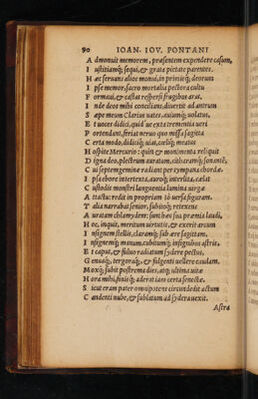 90 IOAN. IOV. PONTANI
A dmonuit memorem, præsentem expendere casum,
I ustitiamq; sequi, & grata pietate parentes.
H æc seruans alios monui, in primisq; deorum
I pse memor, sacro mortalia pectora cultu
F ormaui, & castas respersi frugibus aras.
I nde deos mihi concilians, diuertit ad antrum
S æpe meum Clarius vates, cuiumq; volatus,
E t uoces didici, quid uæ exta trementia ueri
P ortendant, feriat neruo quo missa sagitta
C erta modo, didiciq; uias, cœliq; meatus
H ospite Mercurio: quin & monimenta reliquit
D igna deo, plectrum auratum, citharamq; sonantē,
C ui septemgeminæ radiant per tympana chordæ.
I psa ebore intertexta, auroq; interlita, cælat
C ustodit monstri languentia lumina virga
A tactu: redit in proprium tò uersa figuram.
T alia narrabat senior, subitoq; retexens
A uratam chlamydem: sunt hæc sua præmia laudi,
H oc, inquit, meritum uirtutis, & exerit arcum
I nsignem stellis, claramq; sub ære sagittam.
I nsignemq; manum, cubitumq; insignibus astris,
E t caput, & fuluo radiatum sydere pectus,
G enuaq;, tergoraq;, & fulgenti uellere caudam.
M oxq; subit postrema dies, atq; ultima uitæ
H ora mihi, finisq; aderat iam certa senectæ.
S icut eram pater omnipotens circundedit actum
C andenti nube, & sublatum ad sydera uexit.
Astra